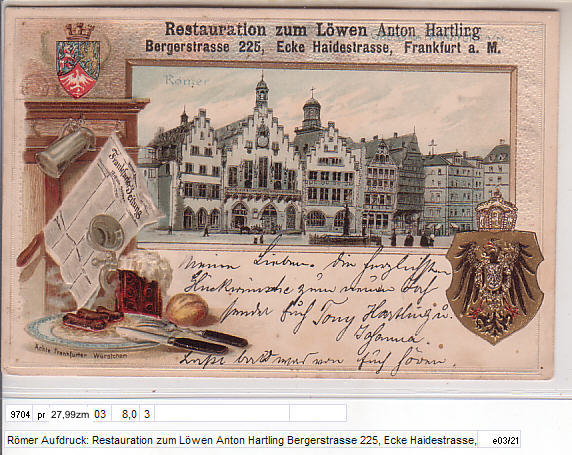 Restauration zum Löwen Anton Hartling
Bergerstrasse 225, Ecke Haidestrasse, Frankfurt a. M.
Römer
Frankfurter Zeitung
Meine Lieben. Die herzlichsten
Glückwünsche zum neuen Jahr
sendet Euch Tony Hartling u.
Johanna.
Laßt bald was von Euch hören.
Ächte Frankfurter Würstchen
9704 pr 27,99zm 03 8,0 3
Römer Aufdruck: Restauration zum Löwen Anton Hartling Bergerstrasse 225, Ecke Haidestrasse, e03/21